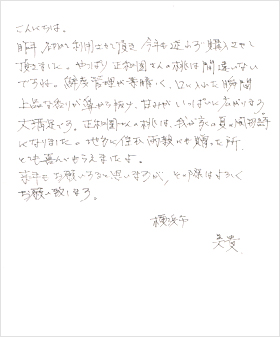 こんにちは。
昨年初めて利用させて頂き今年も迷わず購入させて
頂きました。やっぱり正和園さんの桃は間違いない
ですね。鮮度管理が素晴しく、口に入れた瞬間
上品な香りが鼻から抜け、甘みがいっぱいに広がります。
大満足です。正和園さんの桃は、我が家の夏の風物詩
になりました。他多に住む両親にも贈った所、
とても喜んでもらえましたよ。
来年もお願いろうと思いますが、その際はよろしく
お願い致します。
横浜市